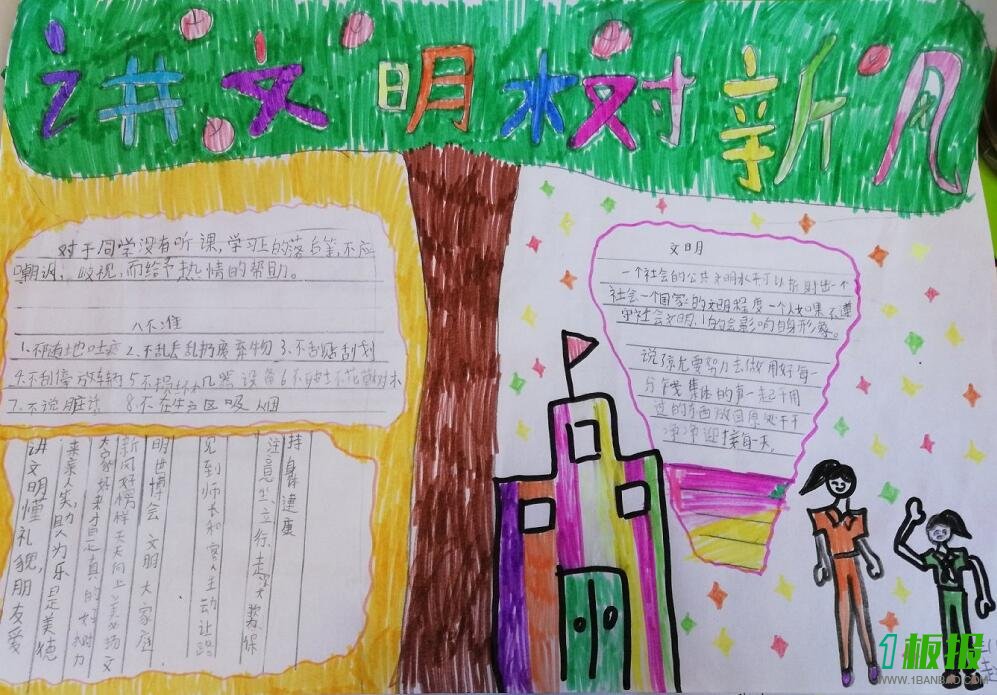 讲文明树新风
对于同学没有听课,学习上的落后等,不应
嘲讽,歧视,而给予热情的帮助。
八不准
1.不随地吐痰 2.不乱丢乱扔废弃物 3.不乱贴乱刻
4.不乱停放车辆 5.不损坏 设备 6.不 花草树木
7.不说脏话 8.不在 区吸烟
讲文明懂礼貌,朋友爱
来亲人笑,助人为乐是美德
大家好才是真的好 树力
新风好榜样天天向上美 扬文
明世博会 文明大家庭
见到师长和客人主动让路
注意坐立行走 姿保
持身体健康
文明
一个社会的公共文明水平可以 出一个
社会一个国家的文明程度一个人如果不遵
守社会文明, 的会影响自身形象。
说 要努力去做用好每一
分钱集体的事一起干用
过的东西放回原处干干
净净迎接每天。
1板报
WWW.1BANBAO.COM